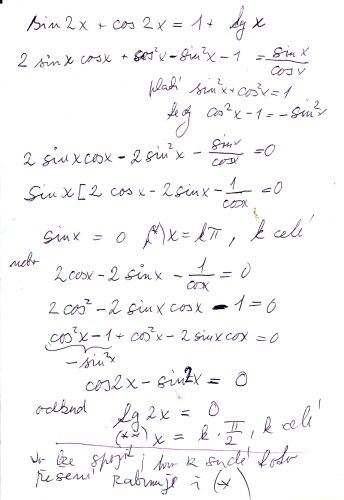 sin 2x + cos 2x = 1 + tg x
2 sin x cos x + cos²x - sin²x - 1 = sin x / cos x
platí sin²x + cos²x = 1
tedy cos²x - 1 = - sin²x
2 sin x cos x - 2 sin²x - sin x / cos x = 0
sin x [ 2 cos x - 2 sin x - 1 / cos x = 0
sin x = 0 (*) x = kπ, k celé
nebo
2 cos x - 2 sin x - 1 / cos x = 0
2 cos² - 2 sin x cos x - 1 = 0
cos²x - 1 + cos²x - 2 sin x cos x = 0
- sin²x
cos 2x - sin 2x = 0
odkud
tg 2x = 0
(**) x = k · π/2, k celé
lze spojit, pro k sudé toto
řešení zahrnuje i (*)